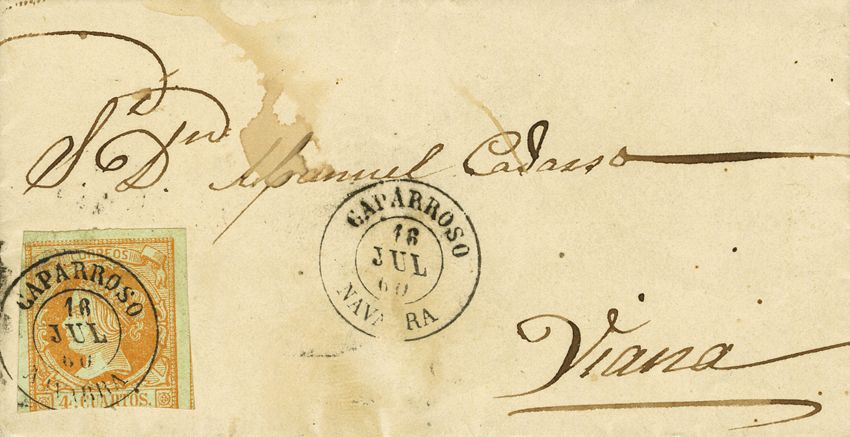 S. Dn. Manuel Cadarso
CAPARROSO
16
JUL
60
NAVARRA
CORREOS
CAPARROSO
16
JUL
60
NAVARRA
4 CUARTOS.
Viana